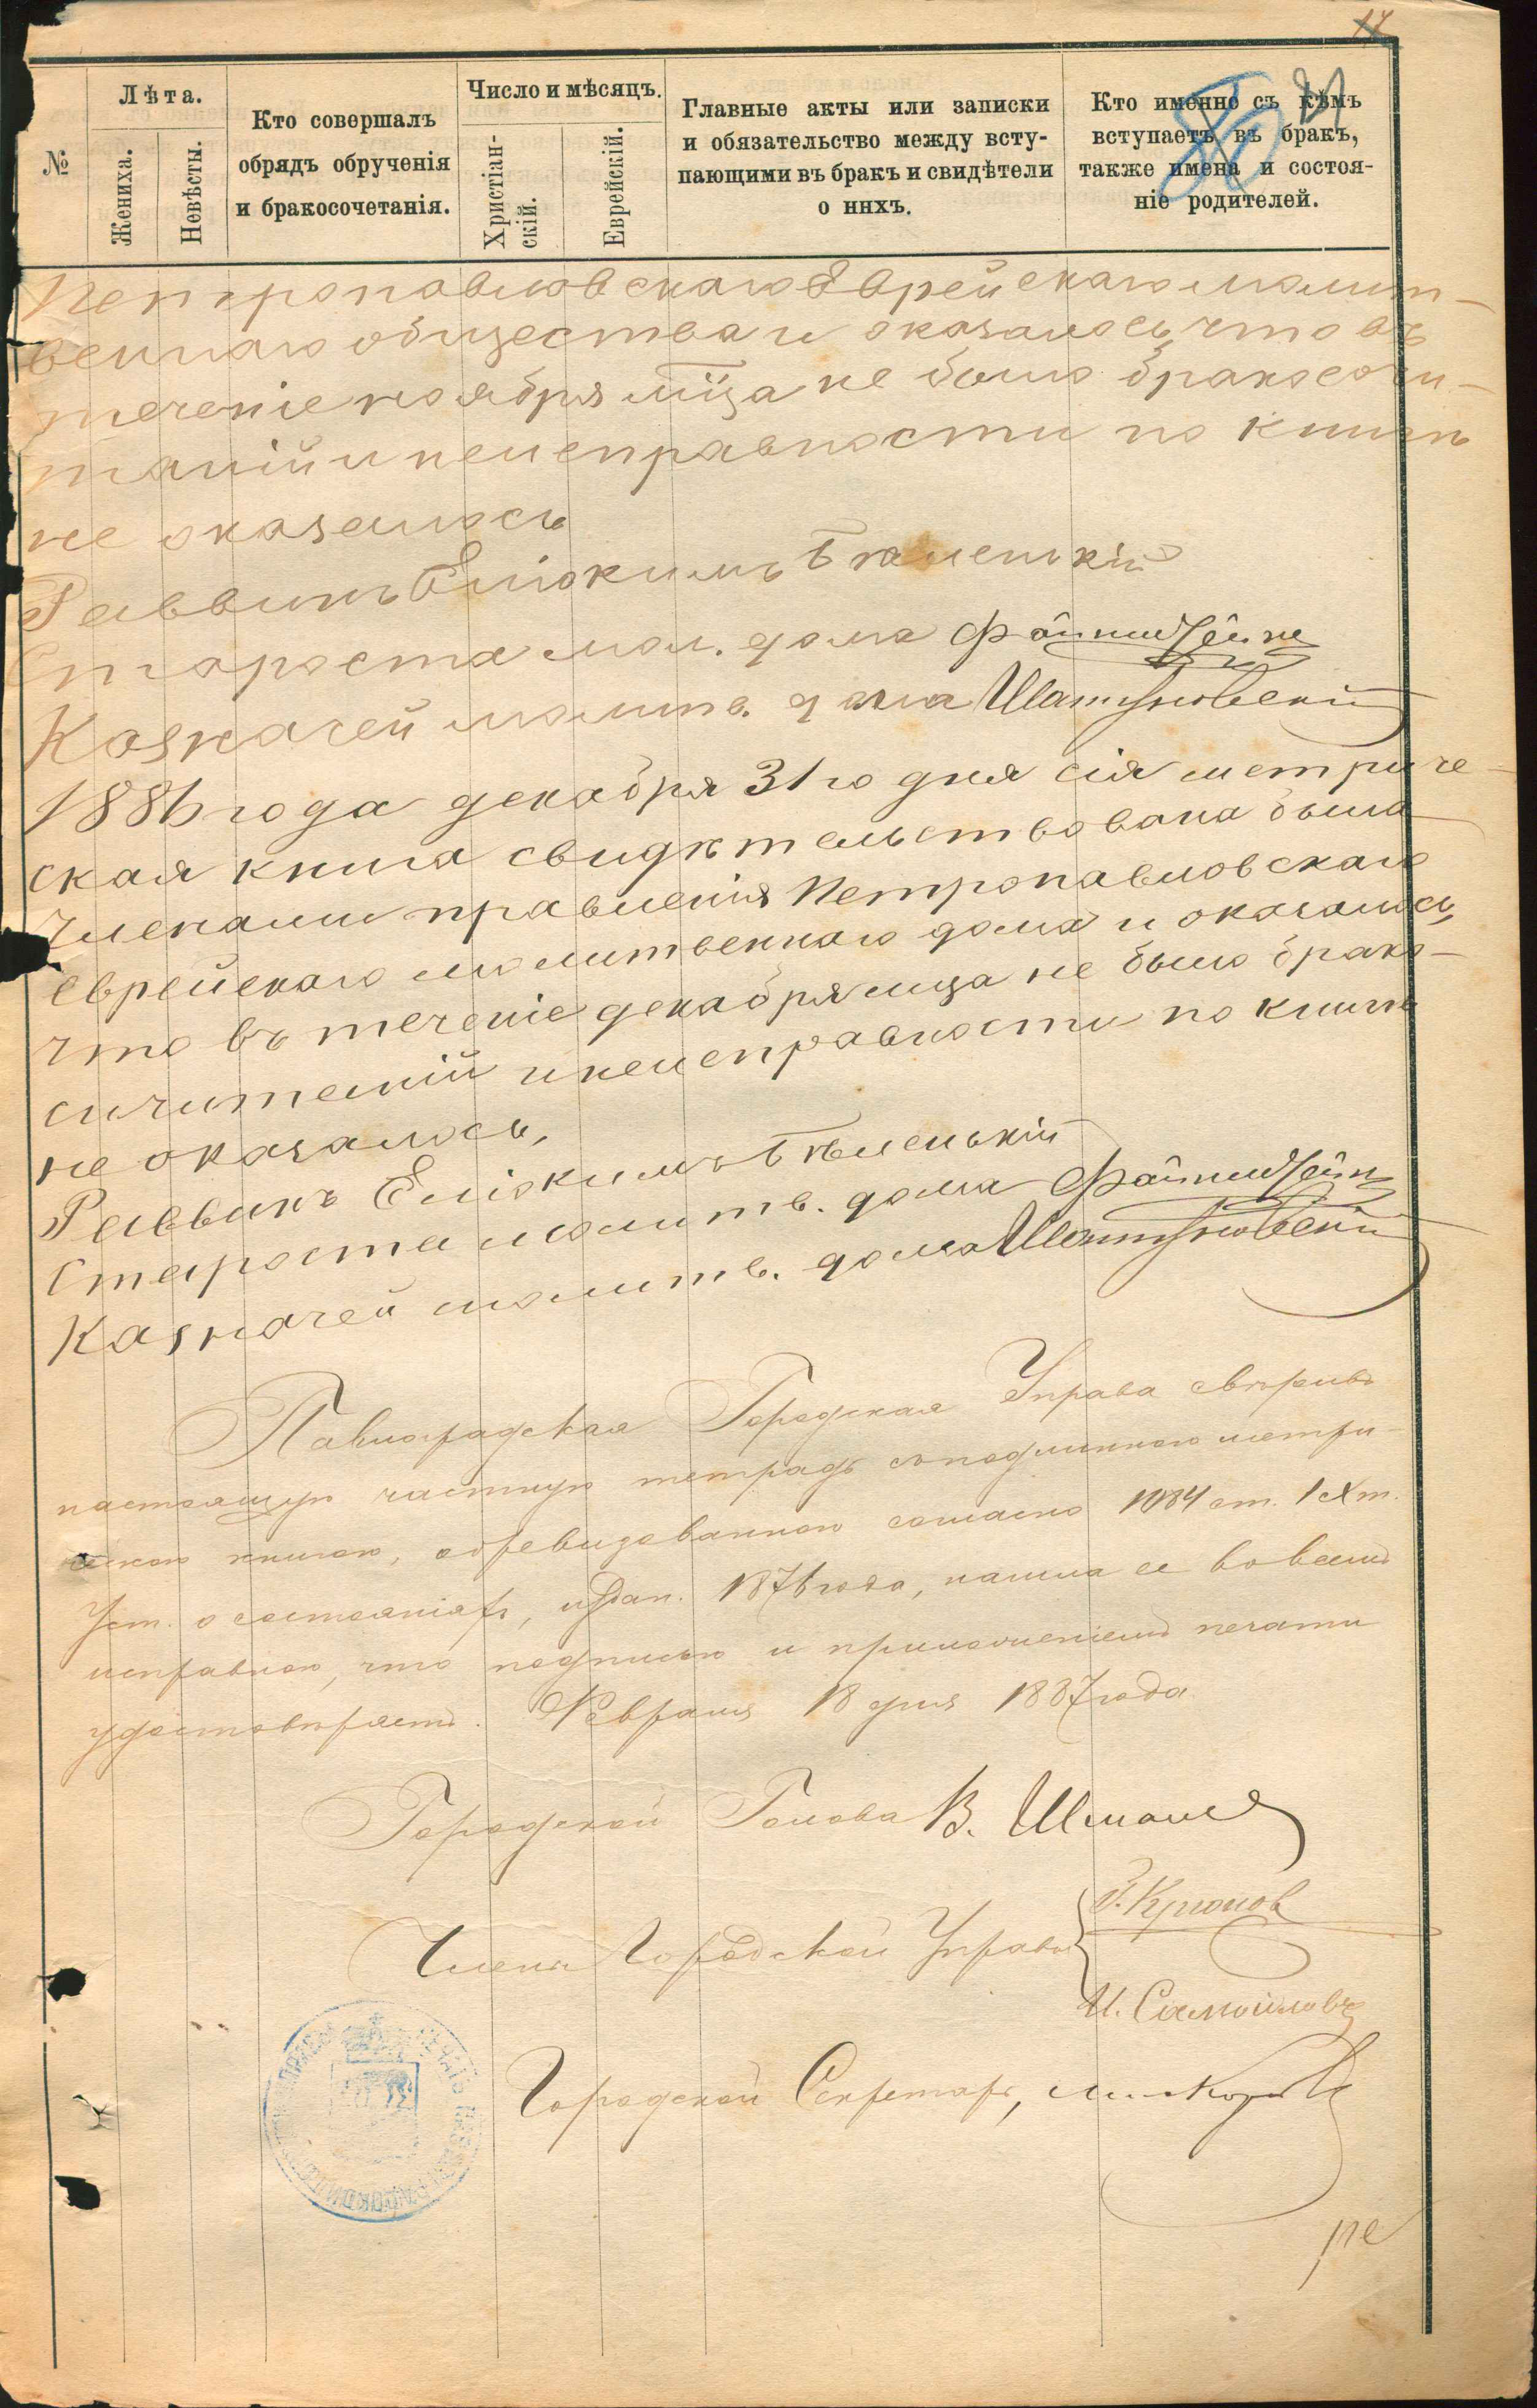 №
Лѣта.
Жениха.
Невѣсты.
Кто совершалъ
обрядъ обрученія
и бракосочетанія.
Число и мѣсяцъ.
Христіан-
скій.
Еврейскій.
Главные акты или записки
и обязательство между всту-
пающими въ бракъ и свидѣтели
о нихъ.
Кто именно съ кѣмъ
вступаетъ въ бракъ,
также имена и состоя-
ніе родителей.
Петропавловскаго Еврейскаго молит-
веннаго общества и оказалось, что въ
теченіе ноября мца не было бракосочи-
таній и неисправности по книгѣ
не оказалось
Раввинъ Еліокимъ Бѣленькій
Староста мол. дома
Казначей молитв. дома Шатуновскій
1886 года декабря 31го дня сія метриче-
ская книга свидѣтельствована была
членами правленія Петропавловскаго
еврейскаго молитвеннаго дома и оказалось,
что въ теченіе декабря мца не было брако-
сичитаній и неисправности по книгѣ
не оказалось,
Раввинъ Еліокимъ Бѣленькій
Староста молитв. дома
Казначей молитв. дома Шатуновскій
Павлоградская Городская Управа свѣривъ
настоящую частную тетрадь съ подлинною метри-
ческою книгою, обревизованною согласно 1084 ст. IX т.
Уст. о состояніяхъ, издан. 1876 года, нашла ее во всемъ
исправною, что подписью и приложеніемъ печати
удостовѣряетъ. Февраля 18 дня 1887 года.
Городской Голова В.
Члены Городской Управы
Крюков
И. Самойловъ
Городской Секретарь,